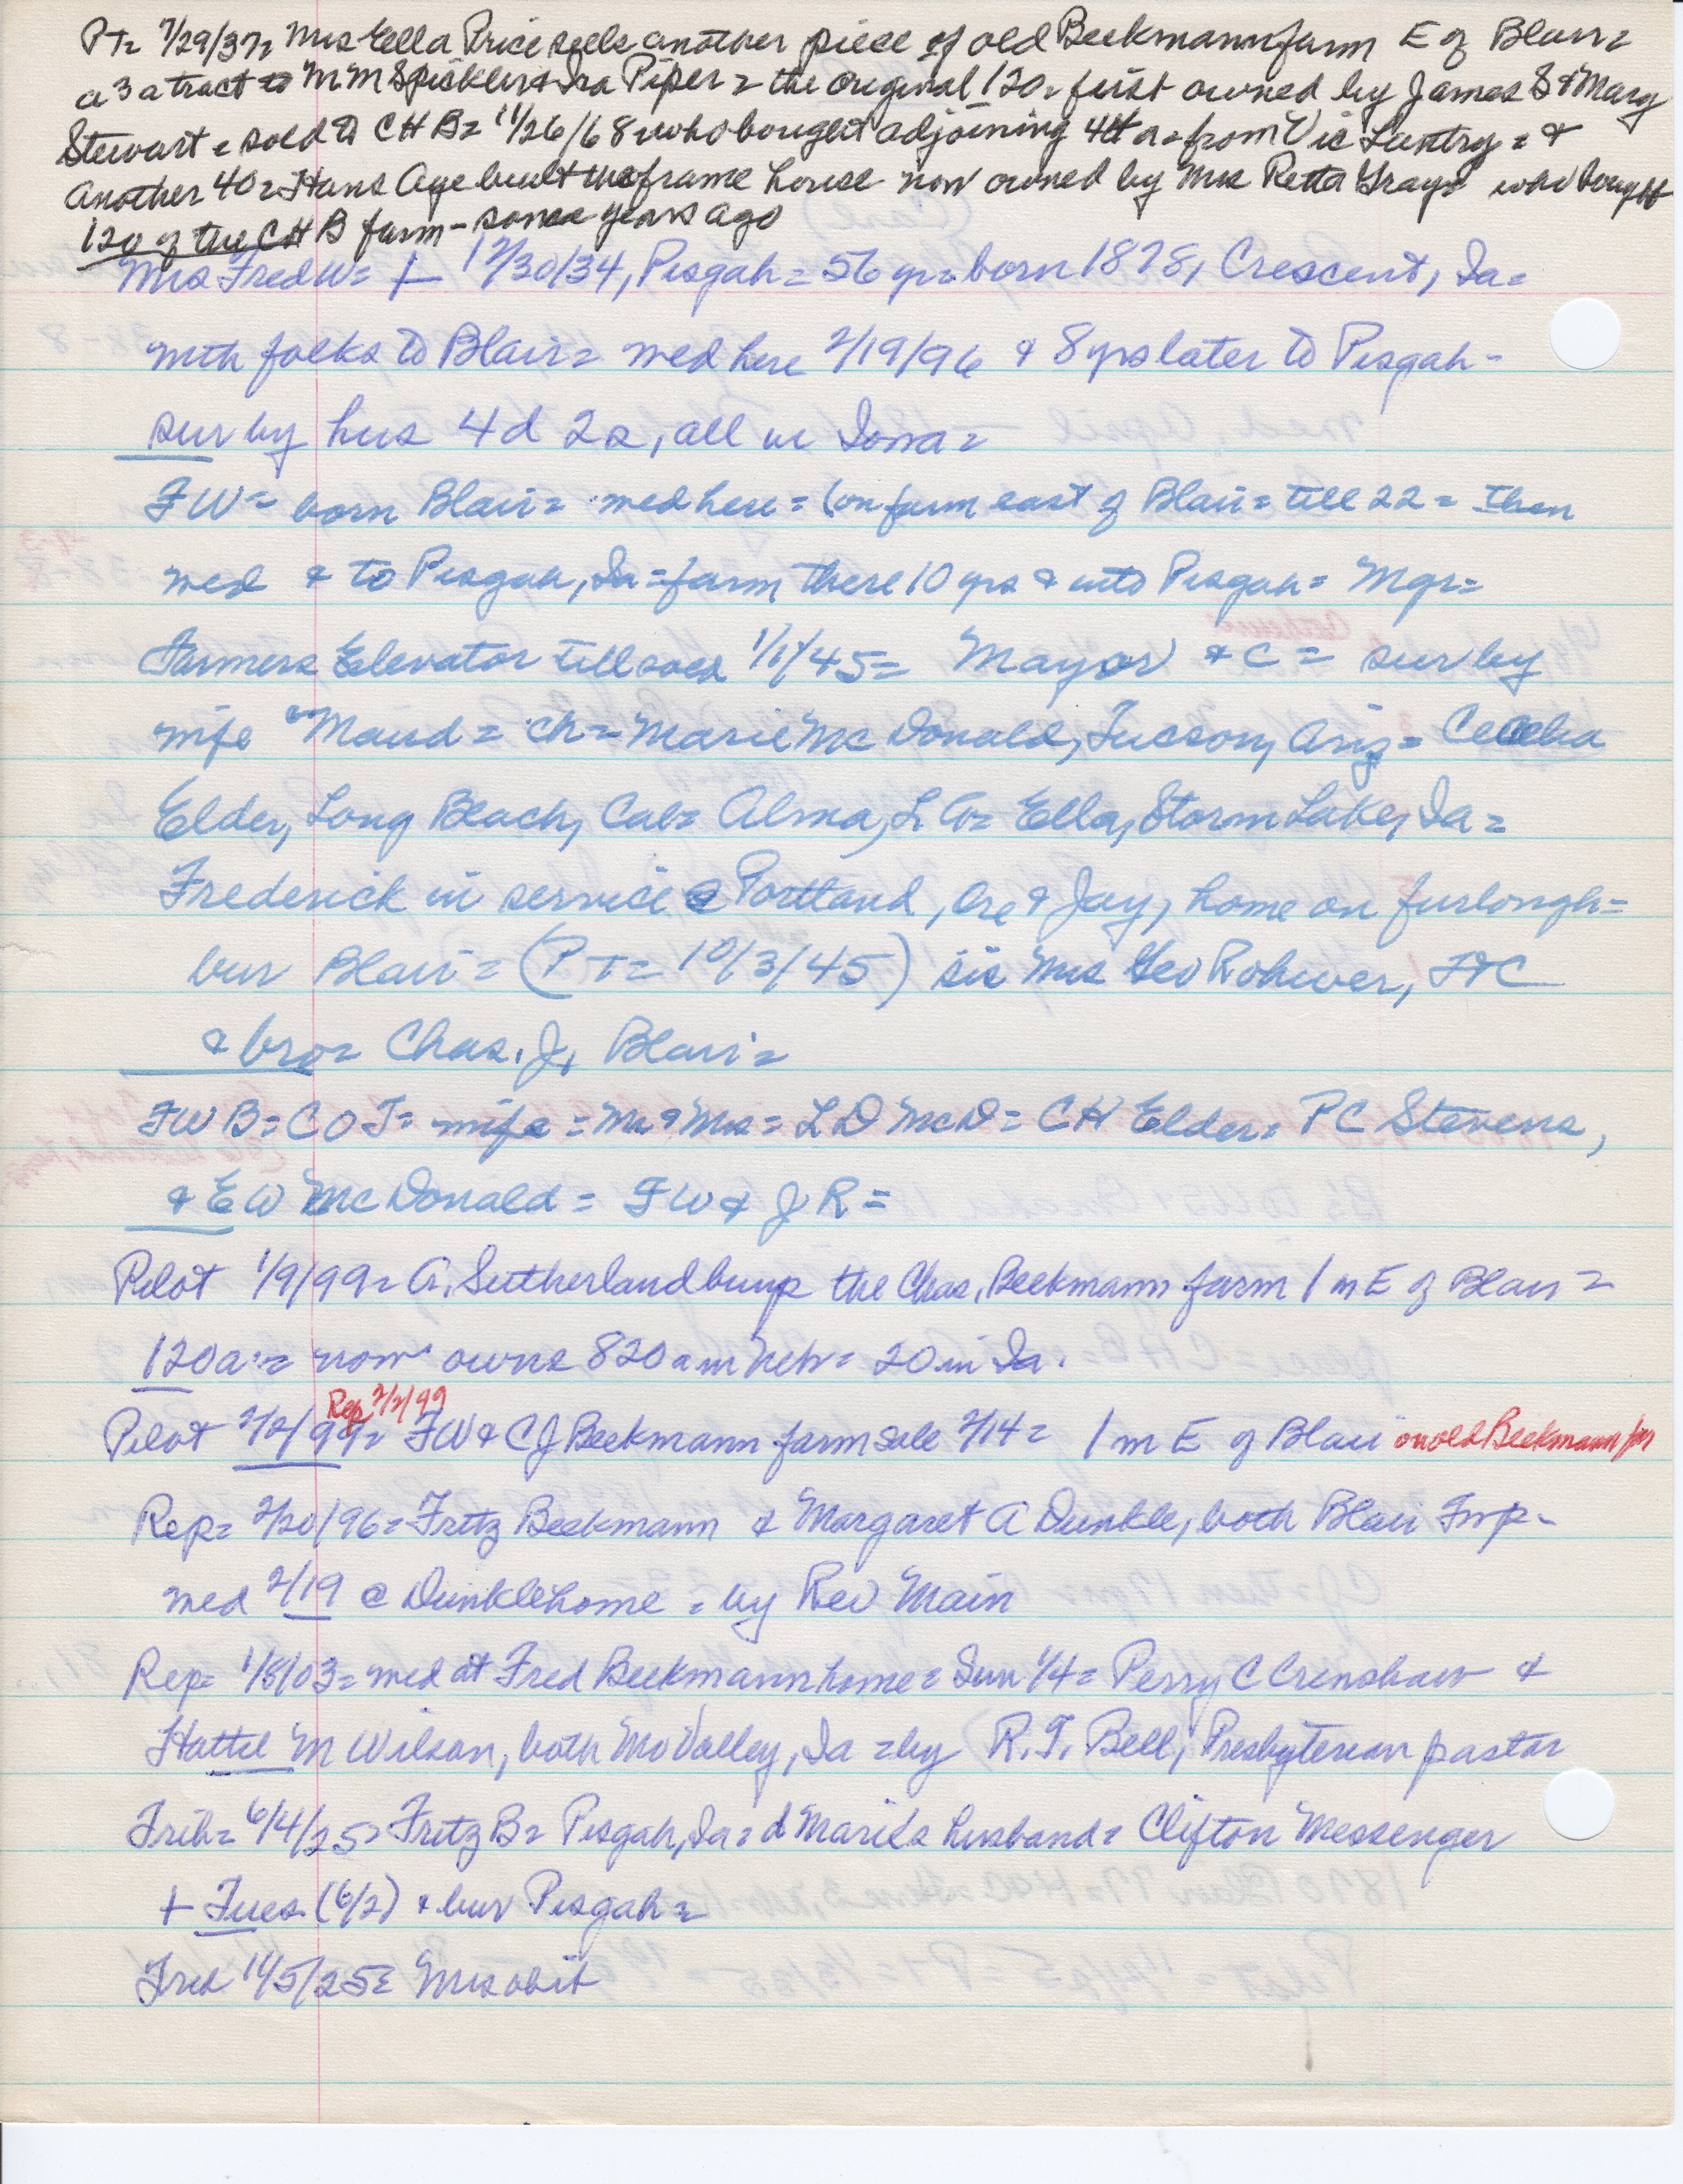 PT= 7/29/37= Mrs Ella Price sells another piece of old Beekmann farm E of Blair=
a 3 a tract to M M Spickler & Ira Piper= the original 120= first owned by James S & Mary
Stewart= sold to CHB= 11/26/68 who bought adjoining 44 a= from Vic Lantry= &
another 40= Hans Age built the frame house now owned by Mrs Retta Grays who bought
120 of the CHB farm- some years ago
Mrs Fred W= + 12/30/34, Pisgah= 56 yr= born 1878, Crescent, Ia=
with folks to Blair= med here 2/19/96 & 8 yrs later to Pisgah-
sur by hus 4d 2s, all in Iowa=
FW= born Blair= med here= (on farm east of Blair= till 22= then
med & to Pisgah, Ia= farm there 10 yrs & into Pisgah= Mgr=
Farmers Elevator till sold 1/1/45= Mayor & C= sur by
wife Maud= ch= Marie McDonald, Tucson, Ariz= Cecelia
Elder, Long Beach, Cal= Alma, L B= Ella, Storm Lake, Ia=
Frederick in service @ Portland, Ore & Jay, home on furlough=
bur Blair= (PT= 10/3/45) sis Mrs Geo Rohwer, Ft C
& bro= Chas. J, Blair=
FWB= COT= wife= Mr & Mrs= LD McD= CH Elder= PC Stevens,
& EW McDonald= FW & JR=
Pilot 1/9/99= A. Sutherland buys the Chas. Beekmann farm 1 m E of Blair=
120a= now owns 820 a in Neb= 20 in Ia.
Rep 2/2/99
Pilot 2/2/99= FW & CJ Beekmann farm sale 2/14= 1 m E of Blair on old Beekmann far
Rep= 2/20/96= Fritz Beekmann & Margaret A Dunkle, both Blair Twp-
med 2/19 @ Dunkle home= by Rev Main
Rep= 1/8/03= med at Fred Beekmann home= Sun 1/4= Perry C Crenshaw &
Hattie M Wilson, both Mo Valley, Ia= by R. T. Bell, Presbyterian pastor
Trib= 6/4/25= Fritz B= Pisgah, Ia= d Marie's husband= Clifton Messenger
+ Tues (6/2) & bur Pisgah=
Fred 11/5/25= Mrs obit